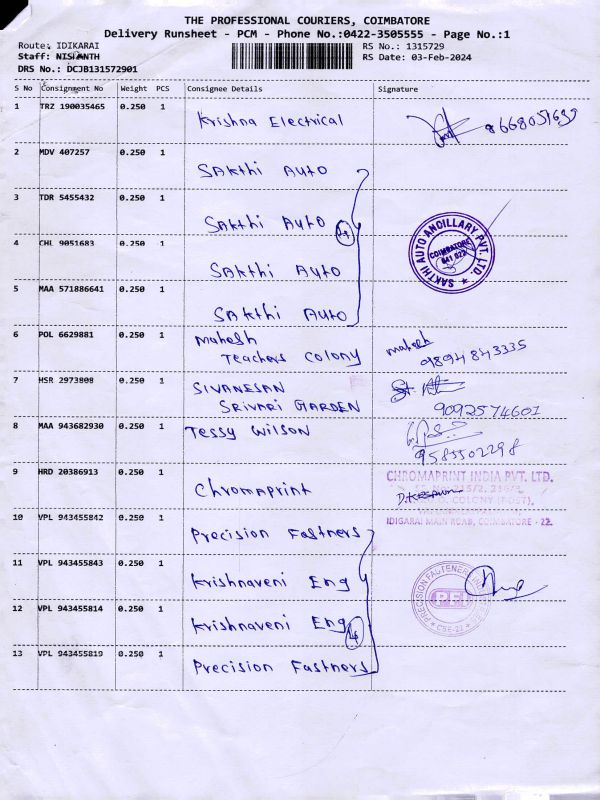 THE PROFESSIONAL COURIERS, COIMBATORE
Delivery Runsheet - PCM - Phone No.:0422-3505555 - Page No.:1
Route: IDIKARAI
RS No.: 1315729
Staff: NISHANTH
RS Date: 03-Feb-2024
DRS No.: DCJB131572901
S No Consignment No Weight PCS Consignee Details Signature
1 TRZ 190035465 0.250 1 Krishna Electrical
2 MDV 407257 0.250 1 SAKthi Auto
3 TDR 5455432 0.250 1 SAKthi Auto
4 CHL 9051683 0.250 1 SAKthi Auto
4
SAKTHI AUTO ANCILLARY PVT. LTD.
COIMBATORE
641 022
5 MAA 571886641 0.250 1 SAKthi Auto
6 POL 6629881 0.250 1 Mahesh
Teachers Colony
mahesh
9894843335
7 HSR 2973808 0.250 1 SIVANESAN
SRIVARI GARDEN
9092574601
8 MAA 943682930 0.250 1 Tessy Wilson
9585502298
9 HRD 20386913 0.250 1 Chromaprint
CHROMAPRINT INDIA PVT. LTD.
COLONY (POST),
IDIGARAI MAIN ROAD, COIMBATORE - 22.
10 VPL 943455842 0.250 1 Precision Fastners
11 VPL 943455843 0.250 1 Krishnaveni Eng
12 VPL 943455814 0.250 1 Krishnaveni Eng
4
PFI
CBE-21
13 VPL 943455819 0.250 1 Precision Fastners